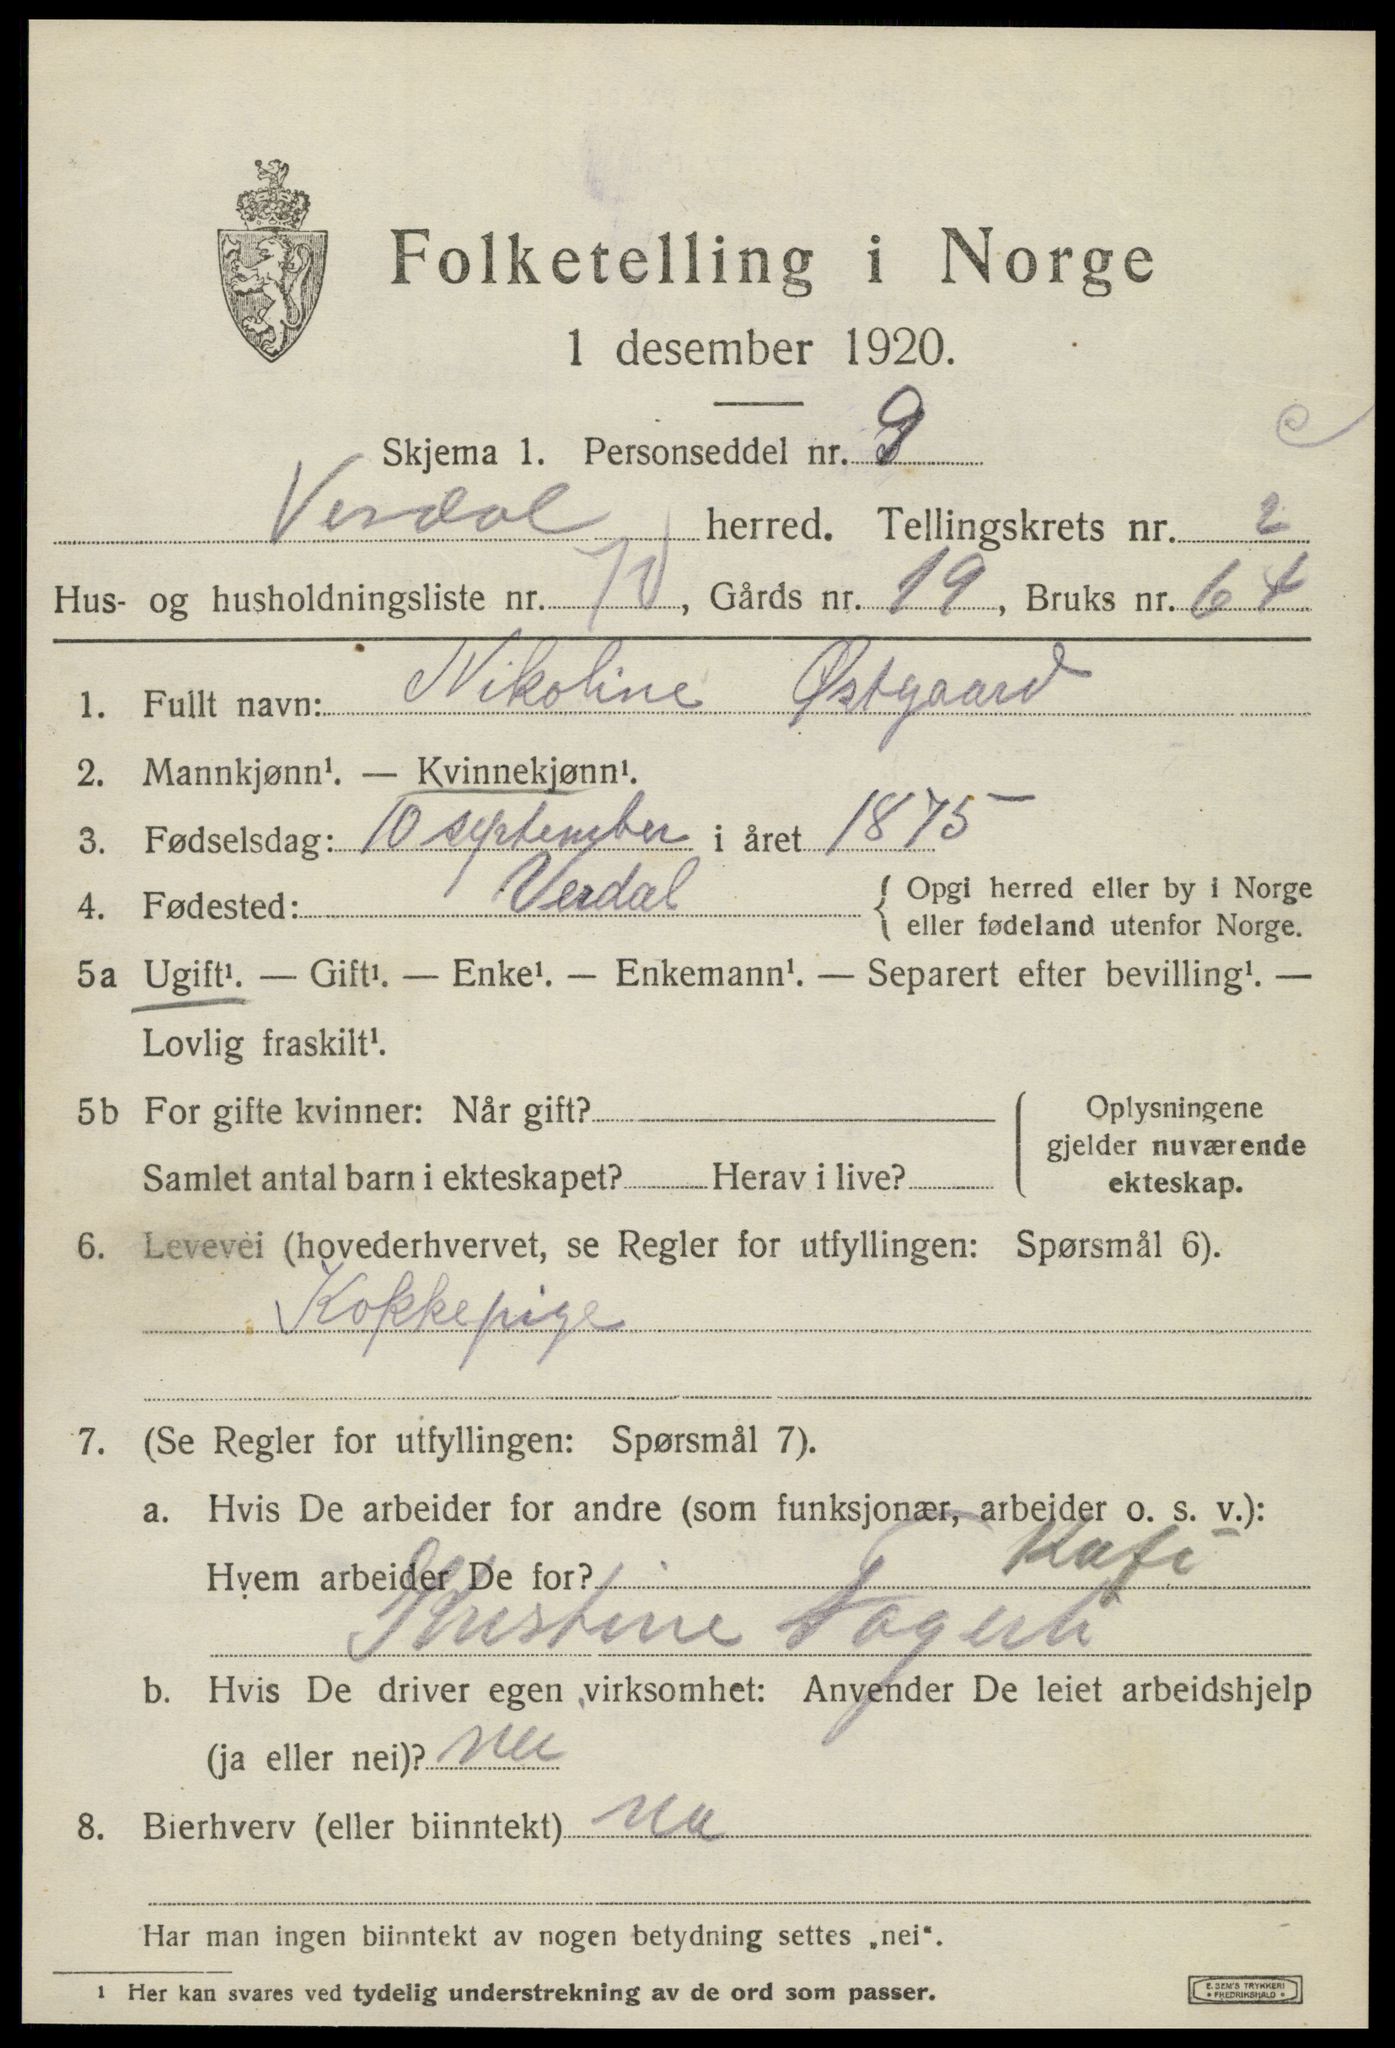 Folketelling i Norge
1 desember 1920.
Skjema 1. Personseddel nr. 9
Verdal herred. Tellingskrets nr. 2
Hus- og husholdningsliste nr. , Gårds nr. 19, Bruks nr. 64
1. Fullt navn: Nikoline Østgaard
2. Mannkjønn¹. — Kvinnekjønn¹.
3. Fødselsdag: 10 september i året 1875
4. Fødested: Verdal { Opgi herred eller by i Norge
eller fødeland utenfor Norge.
5a Ugift¹. — Gift¹. — Enke¹. — Enkemann¹. — Separert efter bevilling¹. —
Lovlig fraskilt¹.
5b For gifte kvinner: Når gift?
Samlet antal barn i ekteskapet? Herav i live?
Oplysningene
gjelder nuværende
ekteskap.
6. Levevei (hovederhvervet, se Regler for utfyllingen: Spørsmål 6).
Kokkepige
7. (Se Regler for utfyllingen: Spørsmål 7).
a. Hvis De arbeider for andre (som funksjonær, arbeider o. s. v.):
Hvem arbeider De for? Kafe
Kristine
b. Hvis De driver egen virksomhet: Anvender De leiet arbeidshjelp
(ja eller nei)? nei
8. Bierhverv (eller biinntekt) nei
Har man ingen biinntekt av nogen betydning settes „nei“.
¹ Her kan svares ved tydelig understrekning av de ord som passer.
E. SEM'S TRYKKERI
• FREDRIKSHALD •